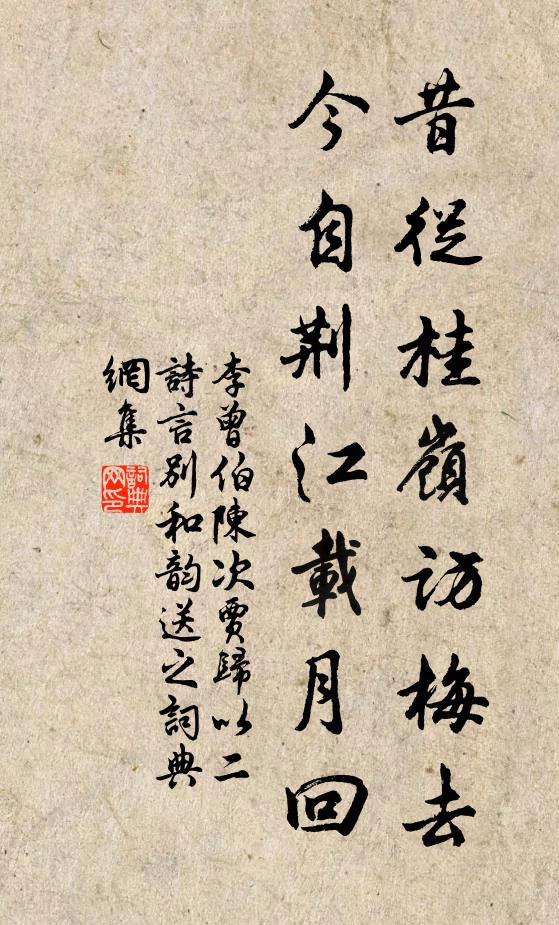 昔從桂嶺訪梅去
今自荆江載月回
李曾伯陳次賈歸以二
詩言別和韵送之詞典
網集
詞典網印